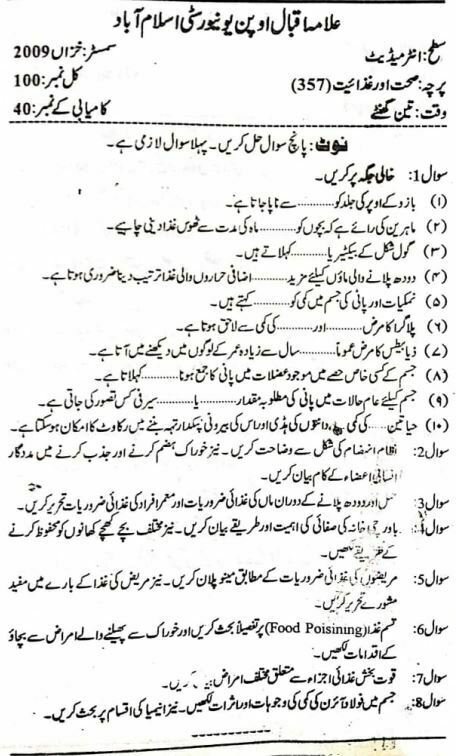 علامہ اقبال اوپن یونیورسٹی اسلام آباد
سطح: انٹرمیڈیٹ سمسٹر: خزاں 2009
پرچہ: صحت اور غذائیت (357) کل نمبر: 100
وقت: تین گھنٹے کامیابی کے نمبر: 40
نوٹ: پانچ سوال حل کریں۔ پہلا سوال لازمی ہے۔
سوال 1: خالی جگہ پر کریں۔
(۱) بازو کے اوپر کی جلد کو............سے ناپا جاتا ہے۔
(۲) ماہرین کی رائے ہے کہ بچوں کو............ماہ کی مدت سے ٹھوس غذا دینی چاہیے۔
(۳) گول شکل کے بیکٹیریا............کہلاتے ہیں۔
(۴) دودھ پلانے والی ماؤں کیلئے مزید............اضافی حراروں والی غذا ترتیب دینا ضروری ہوتا ہے۔
(۵) نمکیات اور پانی کی جسم میں کمی کو............کہتے ہیں۔
(۶) پلاگرا کا مرض............اور............کی کمی سے لاحق ہوتا ہے۔
(۷) ذیابیطس کا مرض عموماً............سال سے زیادہ عمر کے لوگوں میں دیکھنے میں آتا ہے۔
(۸) جسم کے کسی خاص حصے میں موجود عضلات میں پانی کا جمع ہونا............کہلاتا ہے۔
(۹) جسم کیلئے عام حالات میں پانی کی مطلوبہ مقدار............یا............سیر فی کس تصور کی جاتی ہے۔
(۱۰) حیاتین............کی کمی دانتوں کی ہڈی اور اس کی بیرونی چمکدار تہہ بننے میں رکاوٹ کا امکان ہوسکتا ہے۔
سوال 2: نظام انہضام کی شکل سے وضاحت کریں۔ نیز خوراک ہضم کرنے اور جذب کرنے میں مددگار
انسانی اعضاء کے کام بیان کریں۔
سوال 3: اور دودھ پلانے کے دوران ماں کی غذائی ضروریات اور معمر افراد کی غذائی ضروریات تحریر کریں۔
سوال 4: باورچی خانہ کی صفائی کی اہمیت اور طریقے بیان کریں۔ نیز مختلف بچے کھچے کھانوں کو محفوظ کرنے
کے طریقے لکھیں۔
سوال 5: مریضوں کی غذائی ضروریات کے مطابق مینو پلان کریں۔ نیز مریض کی غذا کے بارے میں مفید
مشورے تحریر کریں۔
سوال 6: غذا (Food Poisining) پر تفصیلاً بحث کریں اور خوراک سے پھیلنے والے امراض سے بچاؤ
کے اقدامات لکھیں۔
سوال 7: قوت بخش غذائی اجزاء سے متعلق مختلف امراض کریں۔
سوال 8: جسم میں فولاد/آئرن کی کمی کی وجوہات اور اثرات لکھیں۔ نیز انیمیا کی اقسام پر بحث کریں۔